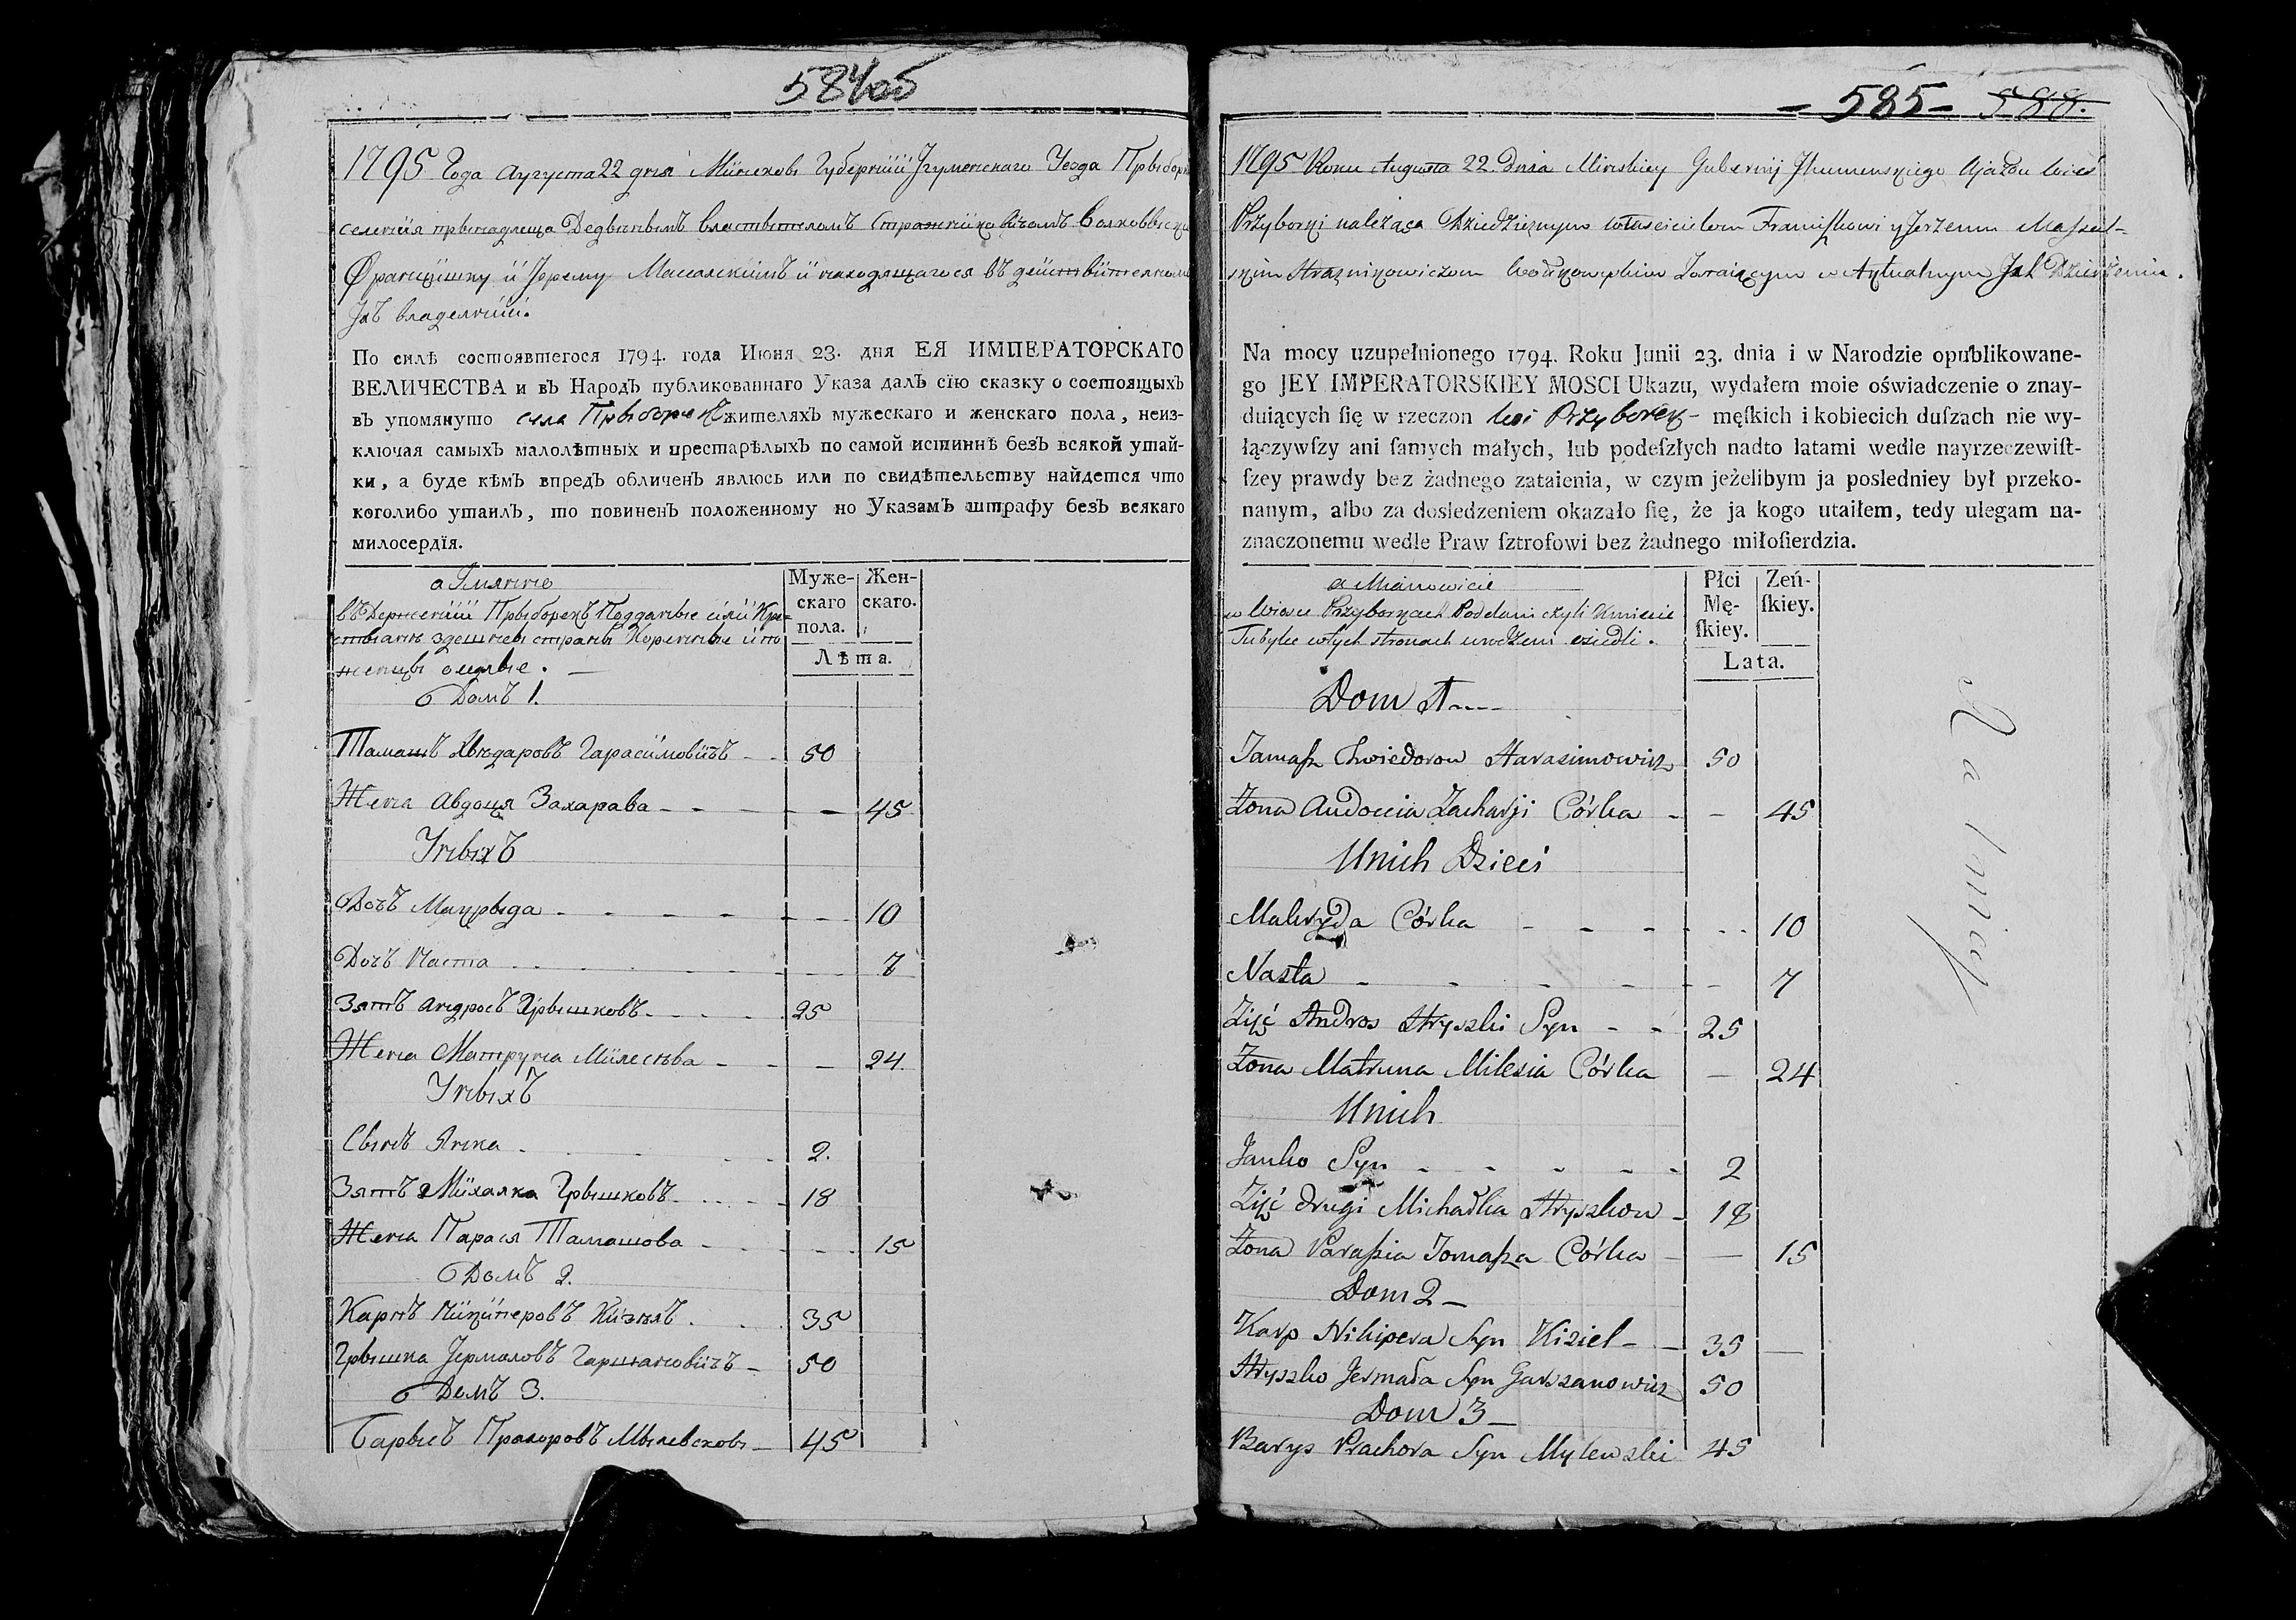 584об
1795 Года Августа 22 дня Минсковы Губернiии Iгуменскаго Уезда Прыборк
селения прынадлеща Дедычнымъ властытеломъ
Францишку и Iерему Массалскiимъ и находящагося въ действiителномъ
Iхъ владенiии.
По силѣ состоявшегося 1794. года Июня 23. дня ЕЯ ИМПЕРАТОРСКАГО
ВЕЛИЧЕСТВА и въ Народъ публикованнаго Указа далъ сїю сказку о состоящыхъ
въ упомянуто села жителяхъ мужескаго и женскаго пола, неиз-
ключая самыхъ малолѣтныхъ и престарѣлыхъ по самой истиннѣ безъ всякой утай-
ки, а буде кѣмъ впредъ обличенъ явлюсь или по свидѣтельству найдется что
коголибо утаилъ, то повиненъ положенному по Указамъ штрафу безъ всякаго
милосердїя.
а Iмянно
въ Деревнiии Прыборкъ Подданые или Кре-
стьянъ здешневы страны Коренные и ту
женцы оселые.
Домъ 1.
Мужескаго пола. Женскаго.
Лѣта.
Тамашъ Хвѣдаровъ Гарасiмовiичъ - - 50
Жена Авдоця Захарава - - - - - 45
Уныхъ
Дочъ Маурыда - - - - - - - 10
Дочъ Наста - - - - - - 7
Зятъ Андросъ Грышковъ - - - - 25
Жена Матруна Миlесѣва - - - 24
Уныхъ
Сынъ Янка - - - - - 2.
Зятъ 2 Мiихалка Грышковъ - - - - 18
Жена Парася Тамашова - - - - - 15
Домъ 2.
Карпъ Нiикiиперовъ Кiизѣлъ - - - 35
Грышка Iермаловъ Гаршановiичъ - 50
Домъ 3.
Барысъ Прахоровъ Мылевсковы - 45
- 585 - 588.
1795 Roku Augusta 22 Dnia Minskiey Gubernij Jhumenskiego Ujazdu Wieś
Przyborki należąca Dziedzicznym właścicielom Franciszkowi y Jerzemu Massal-
skim Strażnikowiczom Wołkowyskim Zostaiącym w Aktualnym Jch Dzierżeniu.
Na mocy uzupełnionego 1794. Roku Junii 23. dnia i w Narodzie opublikowane-
go JEY IMPERATORSKIEY MOSCI Ukazu, wydałem moie oświadczenie o znay-
duiących ſię w rzeczon Wsi Przyborek - męſkich i kobiecich duſzach nie wy-
łączywſzy ani ſamych małych, lub podeſzłych nadto latami wedle nayrzeczewiſt-
ſzey prawdy bez żadnego zataienia, w czym jeżelibym ja posledniey był przeko-
nanym, albo za dosledzeniem okazało ſię, że ja kogo utaiłem, tedy ulegam na-
znaczonemu wedle Praw ſztrofowi bez żadnego miłoſierdzia.
a Mianowicie
w Wiosce Przyborkach Poddani czyli Kmiecie
Tubylce w tych stronach urodzeni osiedli.
Płci Męſkiey. Zeńſkiey.
Lata.
Dom 1
Tamasz Chwiedorow Harasimowicz 50
Żona Audocia Zacharji Córka - - 45
U nich Dzieci
Makryda Córka - - - - - 10
Nasta - - - - - - 7
Zięć Andros Hryszki Syn - - 25
Żona Matruna Milesia Córka - 24
U nich
Janko Syn - - - - - 2
Zięć drugi Michałka Hryszkow - 18
Żona Parasia Tomasza Córka - - 15
Dom 2 -
Karp Nikipera Syn Kiziel - - 35 -
Hryszko Jermała Syn Garszanowicz 50
Dom 3 -
Barys Prachora Syn Mylewski 45